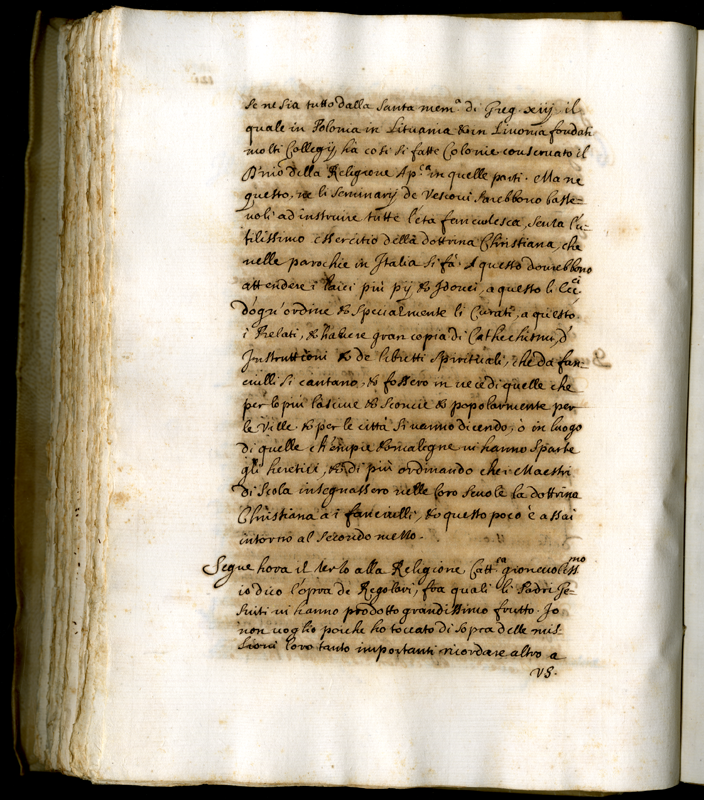 se ne sia tutto dalla santa mem.a di Greg. xiij. il
quale in Polonia in Lituania & in Livonia fondati
molti Collegij, ha cosi si fatte Colonie conseruato il
della Religione Ap.ca in quelle parti. Ma ne
questo, ne li seminarij de Vescoui sarebbono baste-
uoli ad instruire tutte l'età fanciulesca, senza l'u-
tilissimo essercitio della dottrina Christiana, che
nelle parochie in Italia si fà. A questo dourebbono
attendere i laici più pij & Idonei, a questo li
d'ogn'ordine & specialmente li Curati, a questo
i Prelati, & hauere gran copia di Cathechismi, d'
Instruttioni & de libretti spirituali, che da fan-
ciulli si cantano, & fossero in uece di quelle che
per lo più lasciue & sconcie & popolarmente per
le Ville & per le città si uanno dicendo, ò in luogo
di quelle ch'empie & maligne ui hanno sparte
gli heretici, & di più ordinando che i Maestri
di scola insegnassero nelle loro scuole la dottrina
Christiana a i fanciulli, & questo poco è assai
intorno al secondo mezzo.
Segue hora il terzo alla Religione Catt.ca gioneuoliss.mo
io dico l'opra de Regolari, fra quali li Padri Ge-
suiti ui hanno prodotto grandissimo frutto. Io
non uoglio poiche ho toccato di sopra delle mis-
sioni loro tanto importanti ricordare altro a
VS.